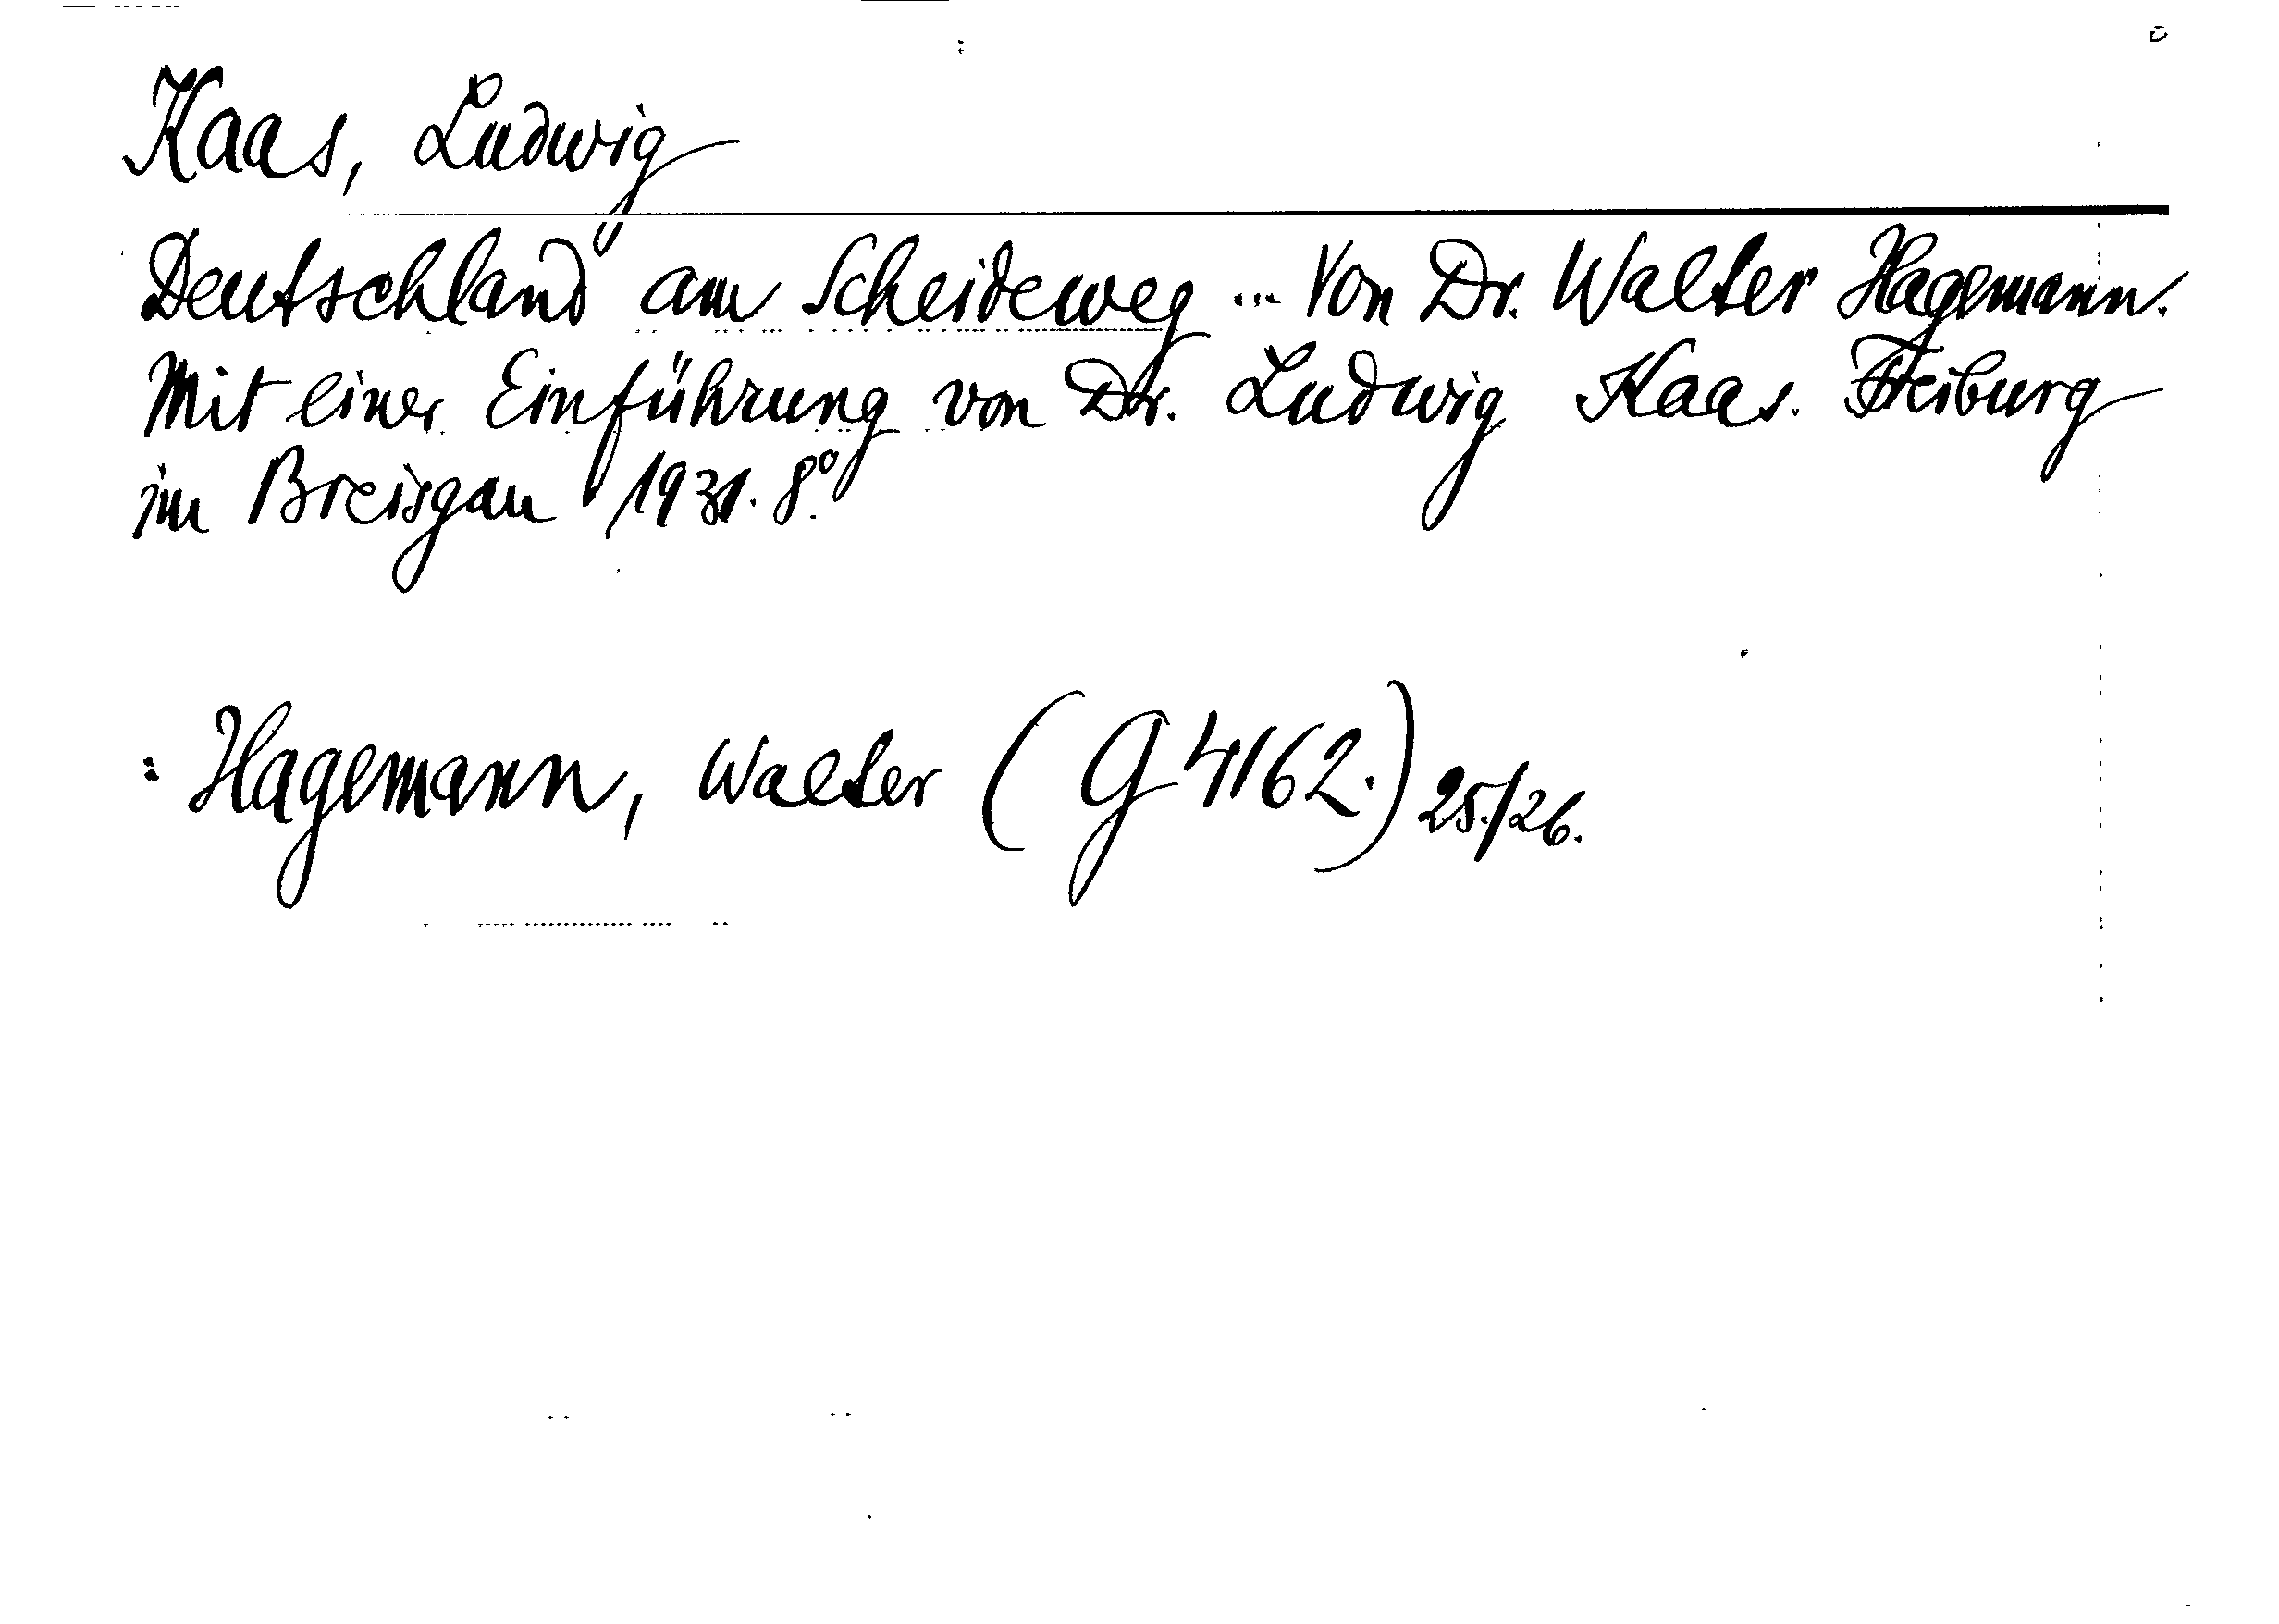 Kaas, Ludwig
Deutschland am Scheideweg ... Von Dr. Walter Hagemann.
Mit einer Einführung von Dr. Ludwig Kaas. Freiburg
im Breisgau 1931. 8°.
: Hagemann, Walter (G 4162.) 25./26.